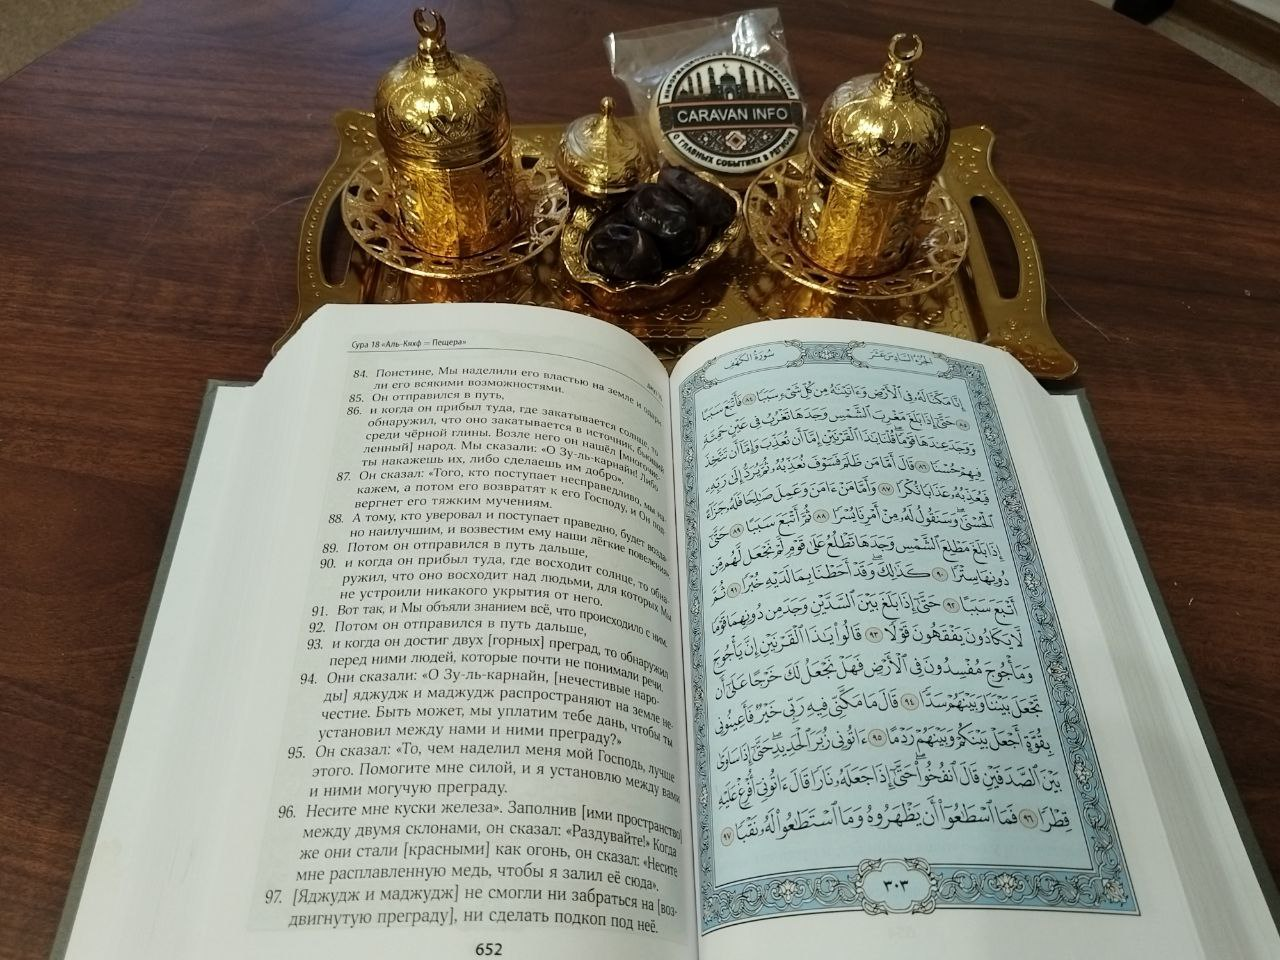 CARAVAN INFO
О ГЛАВНЫХ СОБЫТИЯХ В РЕГИОНЕ
Сура 18 «Аль-Кяхф = Пещера»
84. Поистине, Мы наделили его властью на земле и одари-
ли его всякими возможностями.
85. Он отправился в путь,
86. и когда он прибыл туда, где закатывается солнце, то
обнаружил, что оно закатывается в источник, бьющий
среди чёрной глины. Возле него он нашёл [многочис-
ленный] народ. Мы сказали: «О Зу-ль-карнайн! Либо
ты накажешь их, либо сделаешь им добро».
87. Он сказал: «Того, кто поступает несправедливо, мы на-
кажем, а потом его возвратят к его Господу, и Он под-
вергнет его тяжким мучениям.
88. А тому, кто уверовал и поступает праведно, будет возда-
но наилучшим, и возвестим ему наши лёгкие повеления».
89. Потом он отправился в путь дальше,
90. и когда он прибыл туда, где восходит солнце, то обна-
ружил, что оно восходит над людьми, для которых Мы
не устроили никакого укрытия от него.
91. Вот так, и Мы объяли знанием всё, что происходило с ним.
92. Потом он отправился в путь дальше,
93. и когда он достиг двух [горных] преград, то обнаружил
перед ними людей, которые почти не понимали речи.
94. Они сказали: «О Зу-ль-карнайн, [нечестивые наро-
ды] яджудж и маджудж распространяют на земле не-
честие. Быть может, мы уплатим тебе дань, чтобы ты
установил между нами и ними преграду?»
95. Он сказал: «То, чем наделил меня мой Господь, лучше
этого. Помогите мне силой, и я установлю между вами
и ними могучую преграду.
96. Несите мне куски железа». Заполнив [ими пространство]
между двумя склонами, он сказал: «Раздувайте!» Когда
же они стали [красными] как огонь, он сказал: «Несите
мне расплавленную медь, чтобы я залил её сюда».
97. [Яджудж и маджудж] не смогли ни забраться на [воз-
двигнутую преграду], ни сделать подкоп под неё.
652
سُورَةُ الكَهْفِ
الجُزْءُ السَّادِسَ عَشَرَ
إِنَّا مَكَّنَّا لَهُۥ فِى ٱلْأَرْضِ وَءَاتَيْنَٰهُ مِن كُلِّ شَىْءٍ سَبَبًا ٨٤ فَأَتْبَعَ سَبَبًا
٨٥ حَتَّىٰٓ إِذَا بَلَغَ مَغْرِبَ ٱلشَّمْسِ وَجَدَهَا تَغْرُبُ فِى عَيْنٍ حَمِئَةٍ
وَوَجَدَ عِندَهَا قَوْمًا ۗ قُلْنَا يَٰذَا ٱلْقَرْنَيْنِ إِمَّآ أَن تُعَذِّبَ وَإِمَّآ أَن تَتَّخِذَ
فِيهِمْ حُسْنًا ٨٦ قَالَ أَمَّا مَن ظَلَمَ فَسَوْفَ نُعَذِّبُهُۥ ثُمَّ يُرَدُّ إِلَىٰ رَبِّهِۦ
فَيُعَذِّبُهُۥ عَذَابًا نُّكْرًا ٨٧ وَأَمَّا مَنْ ءَامَنَ وَعَمِلَ صَٰلِحًا فَلَهُۥ جَزَآءً
ٱلْحُسْنَىٰ ۖ وَسَنَقُولُ لَهُۥ مِنْ أَمْرِنَا يُسْرًا ٨٨ ثُمَّ أَتْبَعَ سَبَبًا ٨٩ حَتَّىٰٓ
إِذَا بَلَغَ مَطْلِعَ ٱلشَّمْسِ وَجَدَهَا تَطْلُعُ عَلَىٰ قَوْمٍ لَّمْ نَجْعَل لَّهُم مِّن
دُونِهَا سِتْرًا ٩٠ كَذَٰلِكَ وَقَدْ أَحَطْنَا بِمَا لَدَيْهِ خُبْرًا ٩١ ثُمَّ
أَتْبَعَ سَبَبًا ٩٢ حَتَّىٰٓ إِذَا بَلَغَ بَيْنَ ٱلسَّدَّيْنِ وَجَدَ مِن دُونِهِمَا قَوْمًا
لَّا يَكَادُونَ يَفْقَهُونَ قَوْلًا ٩٣ قَالُوا۟ يَٰذَا ٱلْقَرْنَيْنِ إِنَّ يَأْجُوجَ
وَمَأْجُوجَ مُفْسِدُونَ فِى ٱلْأَرْضِ فَهَلْ نَجْعَلُ لَكَ خَرْجًا عَلَىٰٓ أَن
تَجْعَلَ بَيْنَنَا وَبَيْنَهُمْ سَدًّا ٩٤ قَالَ مَا مَكَّنِّى فِيهِ رَبِّى خَيْرٌ فَأَعِينُونِى
بِقُوَّةٍ أَجْعَلْ بَيْنَكُمْ وَبَيْنَهُمْ رَدْمًا ٩٥ ءَاتُونِى زُبَرَ ٱلْحَدِيدِ ۖ حَتَّىٰٓ إِذَا سَاوَىٰ
بَيْنَ ٱلصَّدَفَيْنِ قَالَ ٱنفُخُوا۟ ۖ حَتَّىٰٓ إِذَا جَعَلَهُۥ نَارًا قَالَ ءَاتُونِىٓ أُفْرِغْ عَلَيْهِ
قِطْرًا ٩٦ فَمَا ٱسْطَٰعُوٓا۟ أَن يَظْهَرُوهُ وَمَا ٱسْتَطَٰعُوا۟ لَهُۥ نَقْبًا ٩٧
٣٠٣